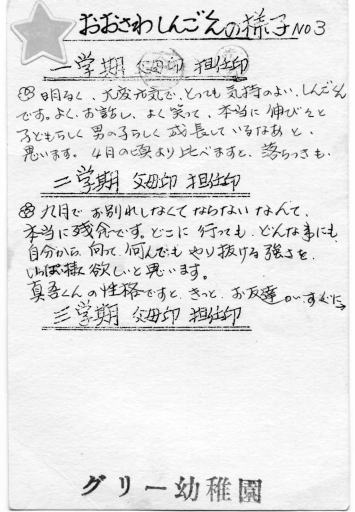 おおさわしんごくんの様子 NO3
一学期 父母印 担任印
明るく、大変元気で、とっても気持のよい、しんごくん
です。よく、お話し、よく笑って、本当に伸びのびと
子どもらしく男の子らしく成長しているなあと、
思います。4月の頃より比べますと、落ちつきも、
二学期 父母印 担任印
九月でお別れしなくてならないなんて、
本当に残念です。どこに行っても、どんな事にも
自分から向って、何んでもやり抜ける強さを、
欲しいと思います。
真吾くんの性格ですと、きっと、お友達がすぐに→
三学期 父母印 担任印
グリー幼稚園